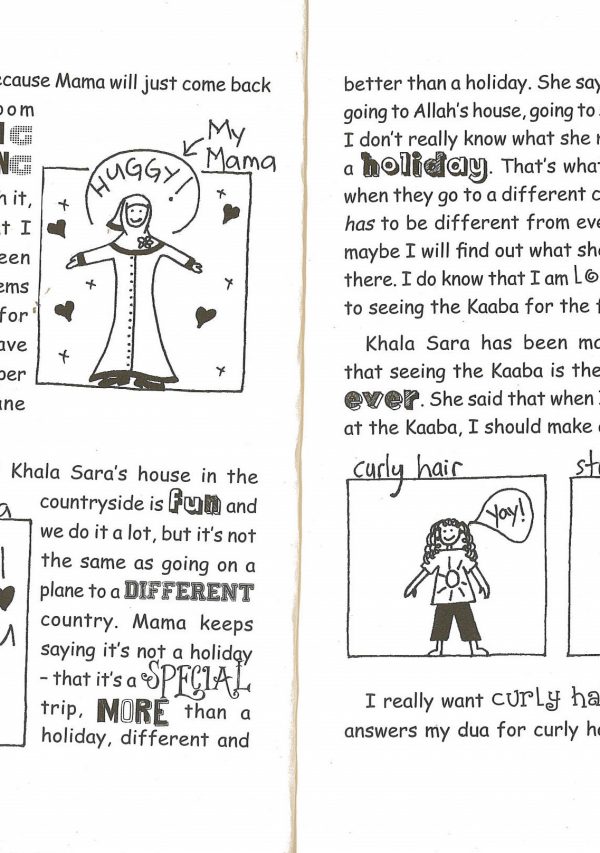 ecause Mama will just come back
oom
NG
NG
h it,
t I
een
ems
for
ave
ane
My
Mama
HUGGY!
Khala Sara's house in the
countryside is fun and
we do it a lot, but it's not
the same as going on a
plane to a DIFFERENT
country. Mama keeps
saying it's not a holiday
– that it's a SPECIAL
trip, MORE than a
holiday, different and
a
u
better than a holiday. She say
going to Allah's house, going to
I don't really know what she
a holiday. That's what
when they go to a different c
has to be different from eve
maybe I will find out what she
there. I do know that I am Lo
to seeing the Kaaba for the f
Khala Sara has been ma
that seeing the Kaaba is the
ever. She said that when I
at the Kaaba, I should make
curly hair
st
Yay!
I really want curly ha
answers my dua for curly ha